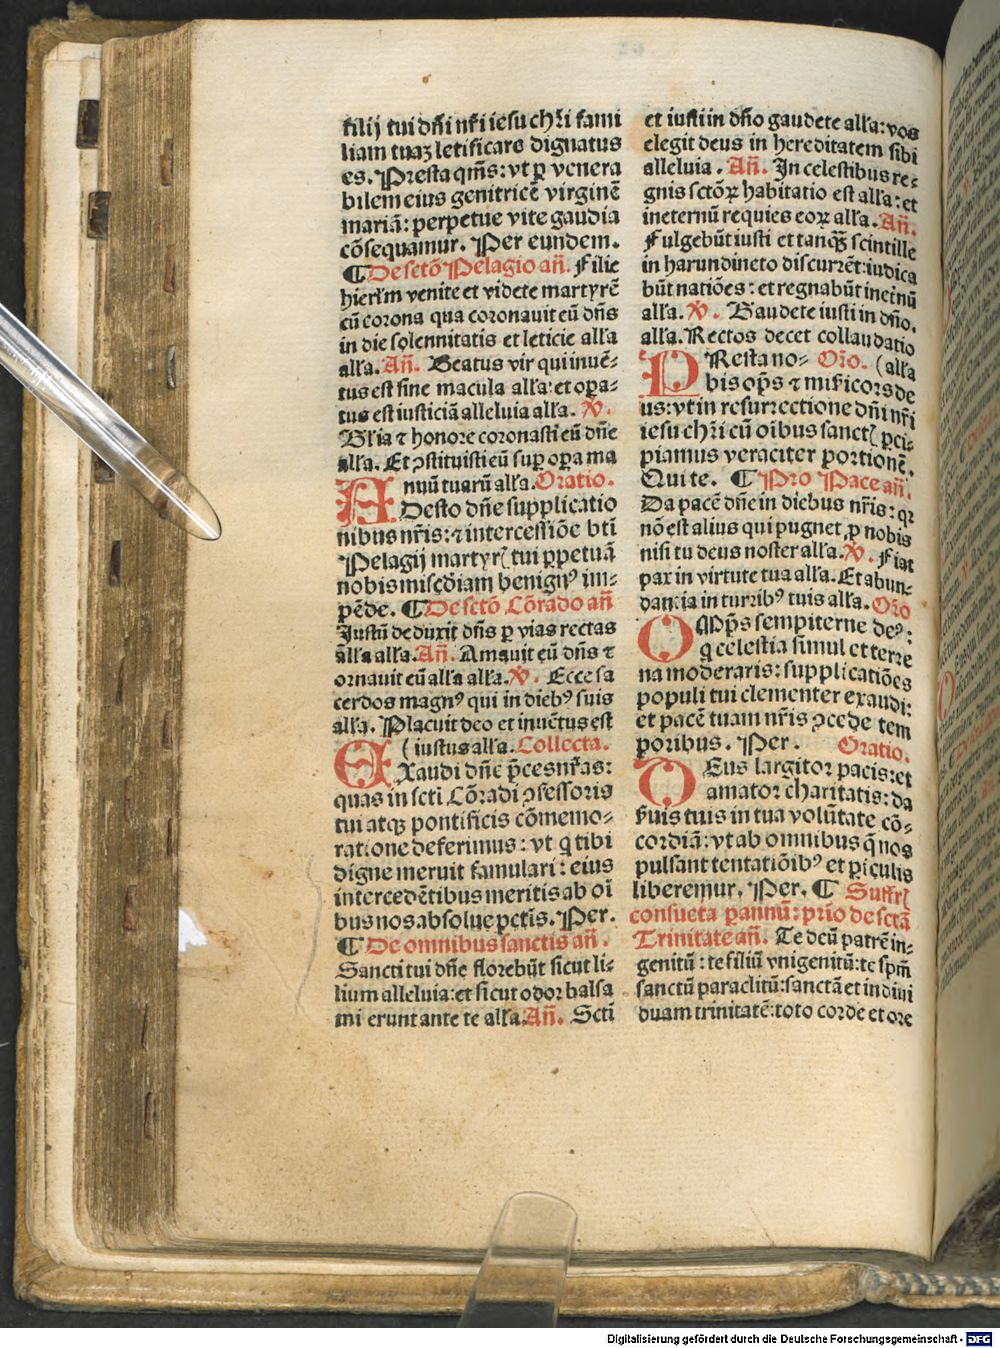 filij tui dñi nr̃i iesu chr̃i fami
liam tuaꝫ letificare dignatus
es. Presta qm̃s: vt ꝑ venera
bilem eius genitricẽ virginẽ
mariã: perpetue vite gaudia
cõsequamur. Per eundem.
¶ De sctõ Pelagio añ. Filie
hierl̃m venite et videte martyrẽ
cũ corona qua coronauit eũ dñs
in die solennitatis et leticie all̃a
all̃a. Añ. Beatus vir qui inuẽ-
tus est sine macula all̃a: et oꝑa-
tus est iusticiã alleluia all̃a. ℣.
Gl̃ia ⁊ honore coronasti eũ dñe
all̃a. Et ꝯstituisti eũ suꝑ oꝑa ma
nuũ tuarũ all̃a. Oratio.
ADesto dñe supplicatio
nibus nr̃is: ⁊ intercessiõe bti
Pelagij martyrꝭ tui ꝑpetuã
nobis miscd̃iam benignꝰ im-
pẽde. ¶ De sctõ Cõrado añ
Iustũ deduxit dñs ꝑ vias rectas
all̃a all̃a. Añ. Amauit eũ dñs ⁊
ornauit eũ all̃a all̃a. ℣. Ecce sa
cerdos magnꝰ qui in diebꝰ suis
all̃a. Placuit deo et inuẽtus est
( iustus all̃a. Collecta.
EXaudi dñe p̃ces nr̃as:
quas in scti Cõradi ꝯfessoris
tui atqꝫ pontificis cõmemo-
ratione deferimus: vt q tibi
digne meruit famulari: eius
intercedẽtibus meritis ab oĩ
bus nos absolue pctĩs. Per.
¶ De omnibus sanctis añ.
Sancti tui dñe florebũt sicut li-
lium alleluia: et sicut odor balsa
mi erunt ante te all̃a. Añ. Scti
et iusti in dño gaudete all̃a: vos
elegit deus in hereditatem sibi
alleluia. Añ. In celestibus re-
gnis sctõꝝ habitatio est all̃a: et
in eternũ requies eoꝝ all̃a. Añ.
Fulgebũt iusti et tanqꝫ̃ scintille
in harundineto discurrẽt: iudica
būt natiões: et regnabũt inet̃nũ
all̃a. ℣. Gaudete iusti in dño.
all̃a. Rectos decet collaudatio
PResta no- Oro. (all̃a
bis op̃s ⁊ mis̃icors de
us: vt in resurrectione dñi nr̃i
iesu chr̃i cũ oĩbus sanctꝭ ꝑci-
piamus veraciter portionẽ.
Qui te. ¶ Pro Pace añ.
Da pacẽ dñe in diebus nr̃is: qꝛ
nõ est alius qui pugnet ꝓ nobis
nisi tu deus noster all̃a. ℣. Fiat
pax in virtute tua all̃a. Et abun-
dantia in turribꝰ tuis all̃a. Oro
OMp̃s sempiterne deꝰ:
q celestia simul et terre
na moderaris: supplicatiões
populi tui clementer exaudi:
et pacẽ tuam nr̃is ꝯcede tem
poribus. Per. Oratio.
DEus largitor pacis: et
amator charitatis: da
fuis tuis in tua volũtate cõ-
cordiã: vt ab omnibus q̃ nos
pulsant tentatiõibꝰ et ꝑiculis
liberemur. Per. ¶ Suffrꝭ
consueta ꝑ annũ: prĩo de sctã
Trinitate añ. Te deũ patrẽ in-
genitũ: te filiũ vnigenitũ: te spm̃
sanctũ paraclitũ: sanctã et indiui
duam trinitatẽ: toto corde et ore
Digitalisierung gefördert durch die Deutsche Forschungsgemeinschaft - DFG